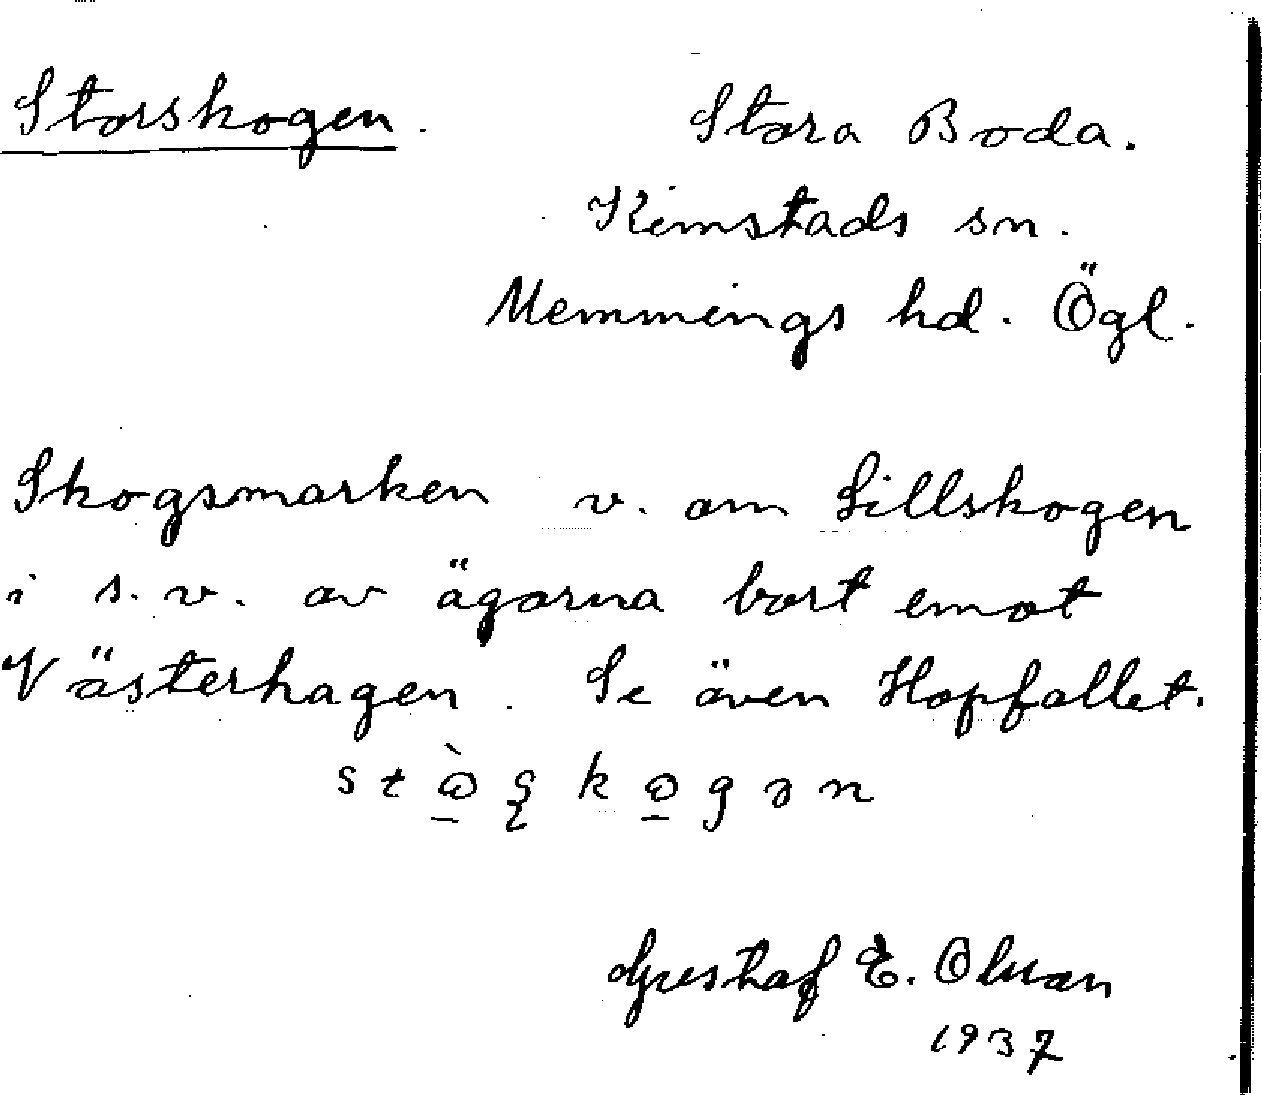 Storskogen. Stora Boda.
Kimstads sn.
Memmings hd. Ögl.
Skogsmarken v. om Lillskogen
i s.v. av ägorna bort emot
Västerhagen. Se även Hopfallet.
Gustaf E. Olman
1937